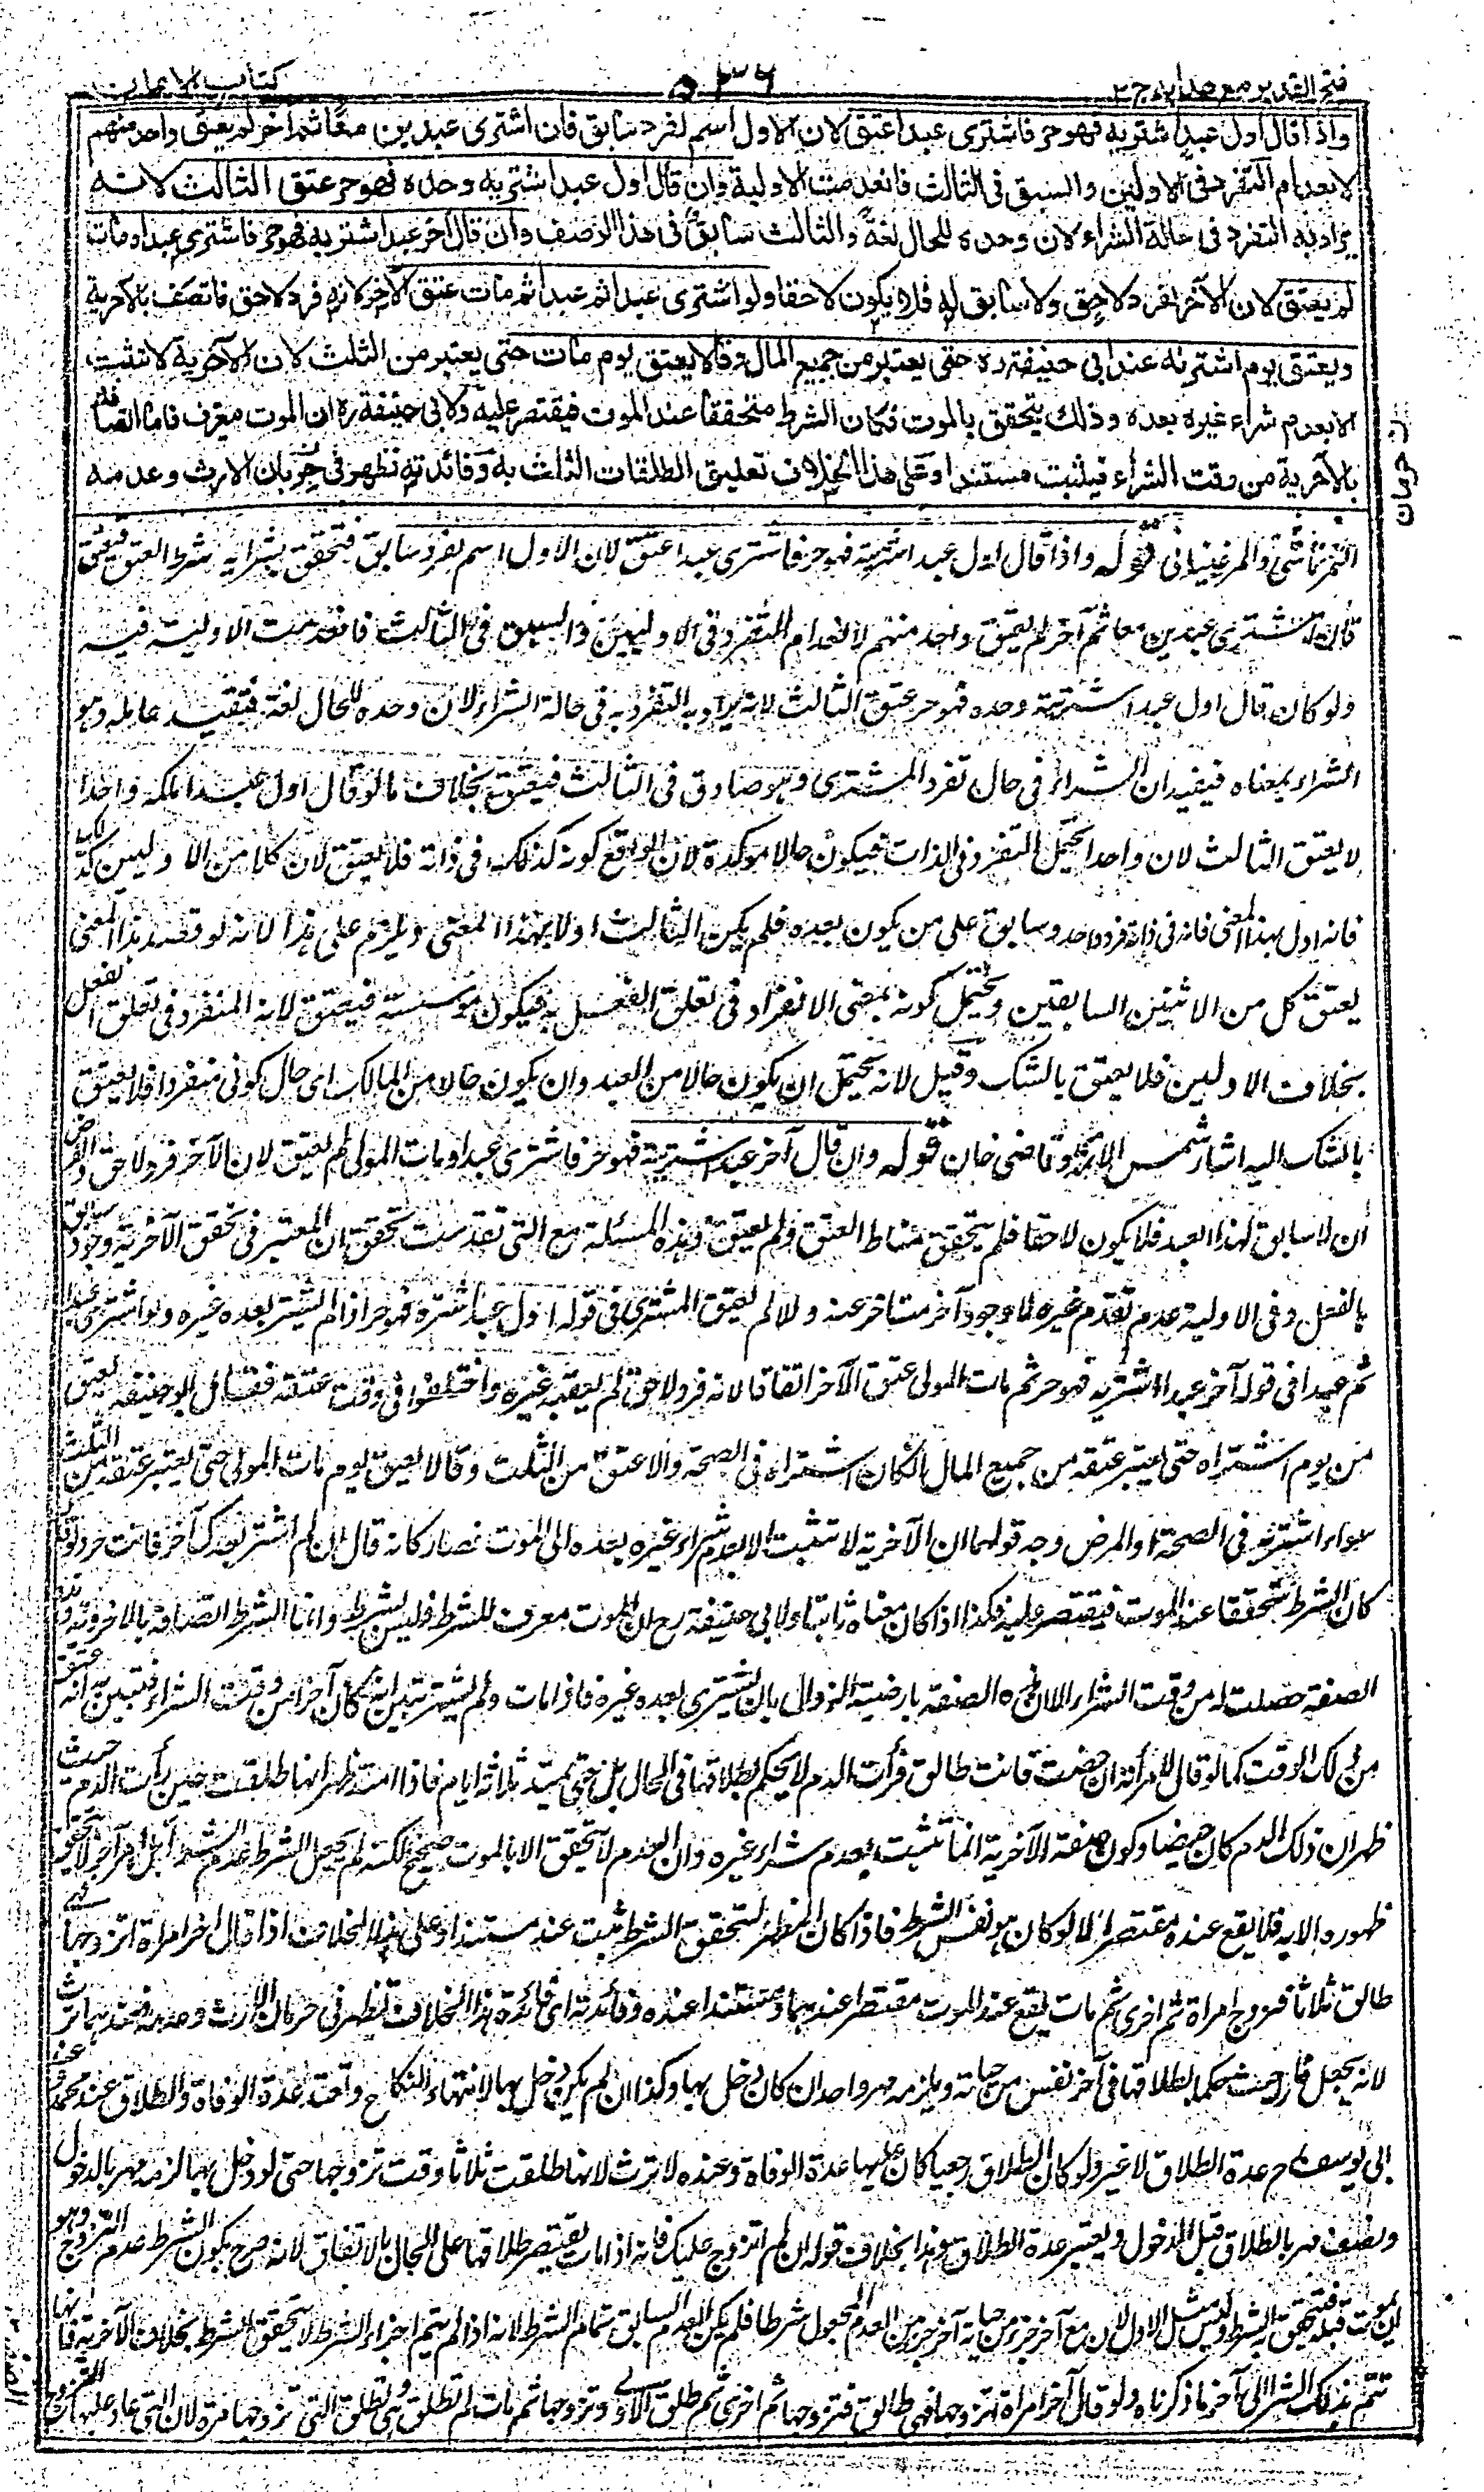 فتح القدير مع هدايه ج ٢
٥٣٦
كتاب الايمان
واذا قال اول عبد اشتريه فهو حر فاشترى عبدا عتق لان الاول اسم لفرد سابق فان اشترى عبدين معا ثم اخر لم يعتق واحد منهم
لانعدام التفرد فى الاولين والسبق فى الثالث فانعدمت الاولية وان قال اول عبد اشتريه وحده فهو حر عتق الثالث لانه
يراد به التفرد فى حالة الشراء لان وحده للحال لغة والثالث سابق فى هذا الوصف وان قال اخر عبد اشتريه فهو حر فاشترى عبدا ومات
لم يعتق لان الآخر لفرد لاحق ولا سابق له فلا يكون لاحقا ولو اشترى عبدا ثم عبدا ثم مات عتق الآخر لانه فرد لاحق فاتصف بالآخرية
ويعتق يوم اشتراه عند ابى حنيفة ره حتى يعتبر من جميع المال وقالا يعتق يوم مات حتى يعتبر من الثلث لان الآخرية لا تثبت
الا بعدم شراء غيره بعده وذلك يتحقق بالموت فكان الشرط متحققا عند الموت فيقتصر عليه ولابى حنيفة ره ان الموت معرف فاما اتصافه
بالآخرية من وقت الشراء فيثبت مستندا وعلى هذا الخلاف تعليق الطلقات الثلث به وفائدته تظهر فى جريان الارث وعدمه
حرمان
التمرتاشى والمرغينانى قوله واذا قال اول عبد اشتريه فهو حر فاشترى عبدا عتق لان الاول اسم لفرد سابق فتحقق بشرائه شرط العتق فيعتق
فان اشترى عبدين معا ثم آخر لم يعتق واحد منهم لانعدام التفرد فى الاوليين والسبق فى الثالث فانعدمت الاولية فيه
ولو كان قال اول عبد اشتريته وحده فهو حر عتق الثالث لانه يراد به التفرد به فى حالة الشراء لان وحده للحال لغة فيتقيد عامله وهو
الشراء بمعناه فيفيد ان الشراء فى حال تفرد المشترى وهو صادق فى الثالث فيعتق بخلاف ما لو قال اول عبد املكه واحدا
لا يعتق الثالث لان واحدا يحتمل التفرد فى الذات فيكون حالا مؤكدة لان الواقع كونه كذلك فى ذاته فلا يعتق لان كلا من الاوليين كذلك
فانه اول بهذا المعنى فانه فى ذاته فرد واحد وسابق على من يكون بعده فلم يكن الثالث اولا بهذا المعنى ويلزم على هذا لانه لو قصد هذا المعنى
يعتق كل من الاثنين السابقين ويحتمل كونه بمعنى الانفراد فى تعلق الفعل به فيكون مؤسسة فيعتق لانه المنفرد فى تعلق الفعل
بخلاف الاولين فلا يعتق بالشك وقيل لانه يحتمل ان يكون حالا من العبد وان يكون حالا من المالك اى حال كونى منفردا فلا يعتق
بالشك اليه اشار شمس الائمة وقاضى خان قوله وان قال آخر عبد اشتريته فهو حر فاشترى عبدا ومات المولى لم يعتق لان الآخر فرد لاحق والفرض
ان لا سابق لهذا العبد فلا يكون لاحقا فلم يتحقق مناط العتق فلم يعتق وهذه المسئلة مع التى تقدمت تحقق ان المعتبر فى تحقق الآخرية وجود سابق
بالفعل وفى الاولية عدم تقدم غيره لا وجود آخر متأخر عنه والا لم يعتق المشترى فى قوله اول عبد اشتره فهو حر اذا لم يشتر بعده غيره ولو اشترى عبدا
ثم عبدا فى قوله آخر عبد اشتريه فهو حر ثم مات المولى عتق الآخر اتفاقا لانه فرد لاحق لم يعقبه غيره واختلفوا فى وقت عتقه فقال ابو حنيفة يعتق
من يوم اشتراه حتى يعتبر عتقه من جميع المال ان كان اشتراه فى الصحة والا عتق من الثلث وقالا يعتق يوم مات المولى حتى يعتبر عتقه من الثلث
سواء اشتريه فى الصحة او المرض وجه قولهما ان الآخرية لا تثبت الا بعدم شراء غيره بعده الى الموت فصار كانه قال ان لم اشتر بعدك آخر فانت حر
كان الشرط متحققا عند الموت فيقتصر عليه فكذا اذا كان معناه ثابتا ولابى حنيفة رح ان الموت معرف للشرط وليس بشرط وانما الشرط اتصافه بالآخرية وهذه
الصفة حصلت له من وقت الشراء الا ان هذه الصفة بارضية الزوال بان يشترى بعده غيره فاذا مات ولم يشتر تبين انه كان آخرا من وقت الشراء فتبين انه عتقه
من ذلك الوقت كما لو قال لامرأته ان حضت فانت طالق فرأت الدم لا يحكم بطلاقها فى الحال بل حتى يمتد ثلاثة ايام فاذا امتد ظهر انها طلقت حين رأت الدم حيث
ظهر ان ذلك الدم كان حيضا وكون صفة الآخرية انما تثبت بعدم شراء غيره وان العدم لا يتحقق الا بالموت صحيح لكنه لم يجعل الشرط عدم الشراء بل امر آخر لا يتحقق
ظهوره الا به فلا يقع عنده مقتصرا الا لو كان هو نفس الشرط فاذا كان المظهر لتحقق الشرط ثبت عنده مستندا وعلى هذا الخلاف اذا قال آخر امرأة اتزوجها فهى
طالق ثلاثا فتزوج امراة ثم اخرى ثم مات يقع عند الموت مقتصرا عندهما ومستندا عنده وفائدته اى فائدة هذا الخلاف تظهر فى حرمان الارث وعدمه فعندهما ترث
لانه يجعل فارا حيث حكم بطلاقها فى آخر نفس من حياته ويلزمه مهر واحد ان كان دخل بها وكذا ان لم يكن دخل بها لانتهاء النكاح وتعتد عدة الوفاة والطلاق عند محمد وعند
ابى يوسف رح عدة الطلاق لا غير ولو كان الطلاق رجعيا كان عليها عدة الوفاة وعنده لا ترث لانها طلقت ثلاثا وقت تزوجها حتى لو دخل بها لزمه مهر بالدخول
ونصف مهر بالطلاق قبل الدخول ويعتبر عدة الطلاق وهذا بخلاف قوله ان لم اتزوج عليك فانه اذا مات يقتصر طلاقها على الحال بالاتفاق لانه صرح بكون الشرط عدم التزوج وهو
فيتحقق به الشرط وليس مثل الاول لان مع آخر جزء من حياته آخر جزء من العدم المجعول شرطا فلم يكن العدم السابق تمام الشرط لانه اذا لم يتم اجزاء الشرط لا يتحقق الشرط بخلاف الآخرية فانها
تتم بذلك الشراء الى آخر ما ذكرناه ولو قال آخر امرأة اتزوجها فهى طالق فتزوجها ثم اخرى ثم طلق الاولى وتزوجها ثم مات لم تطلق هى وتطلق التى تزوجها مرة لان التى عاد عليها التزوج